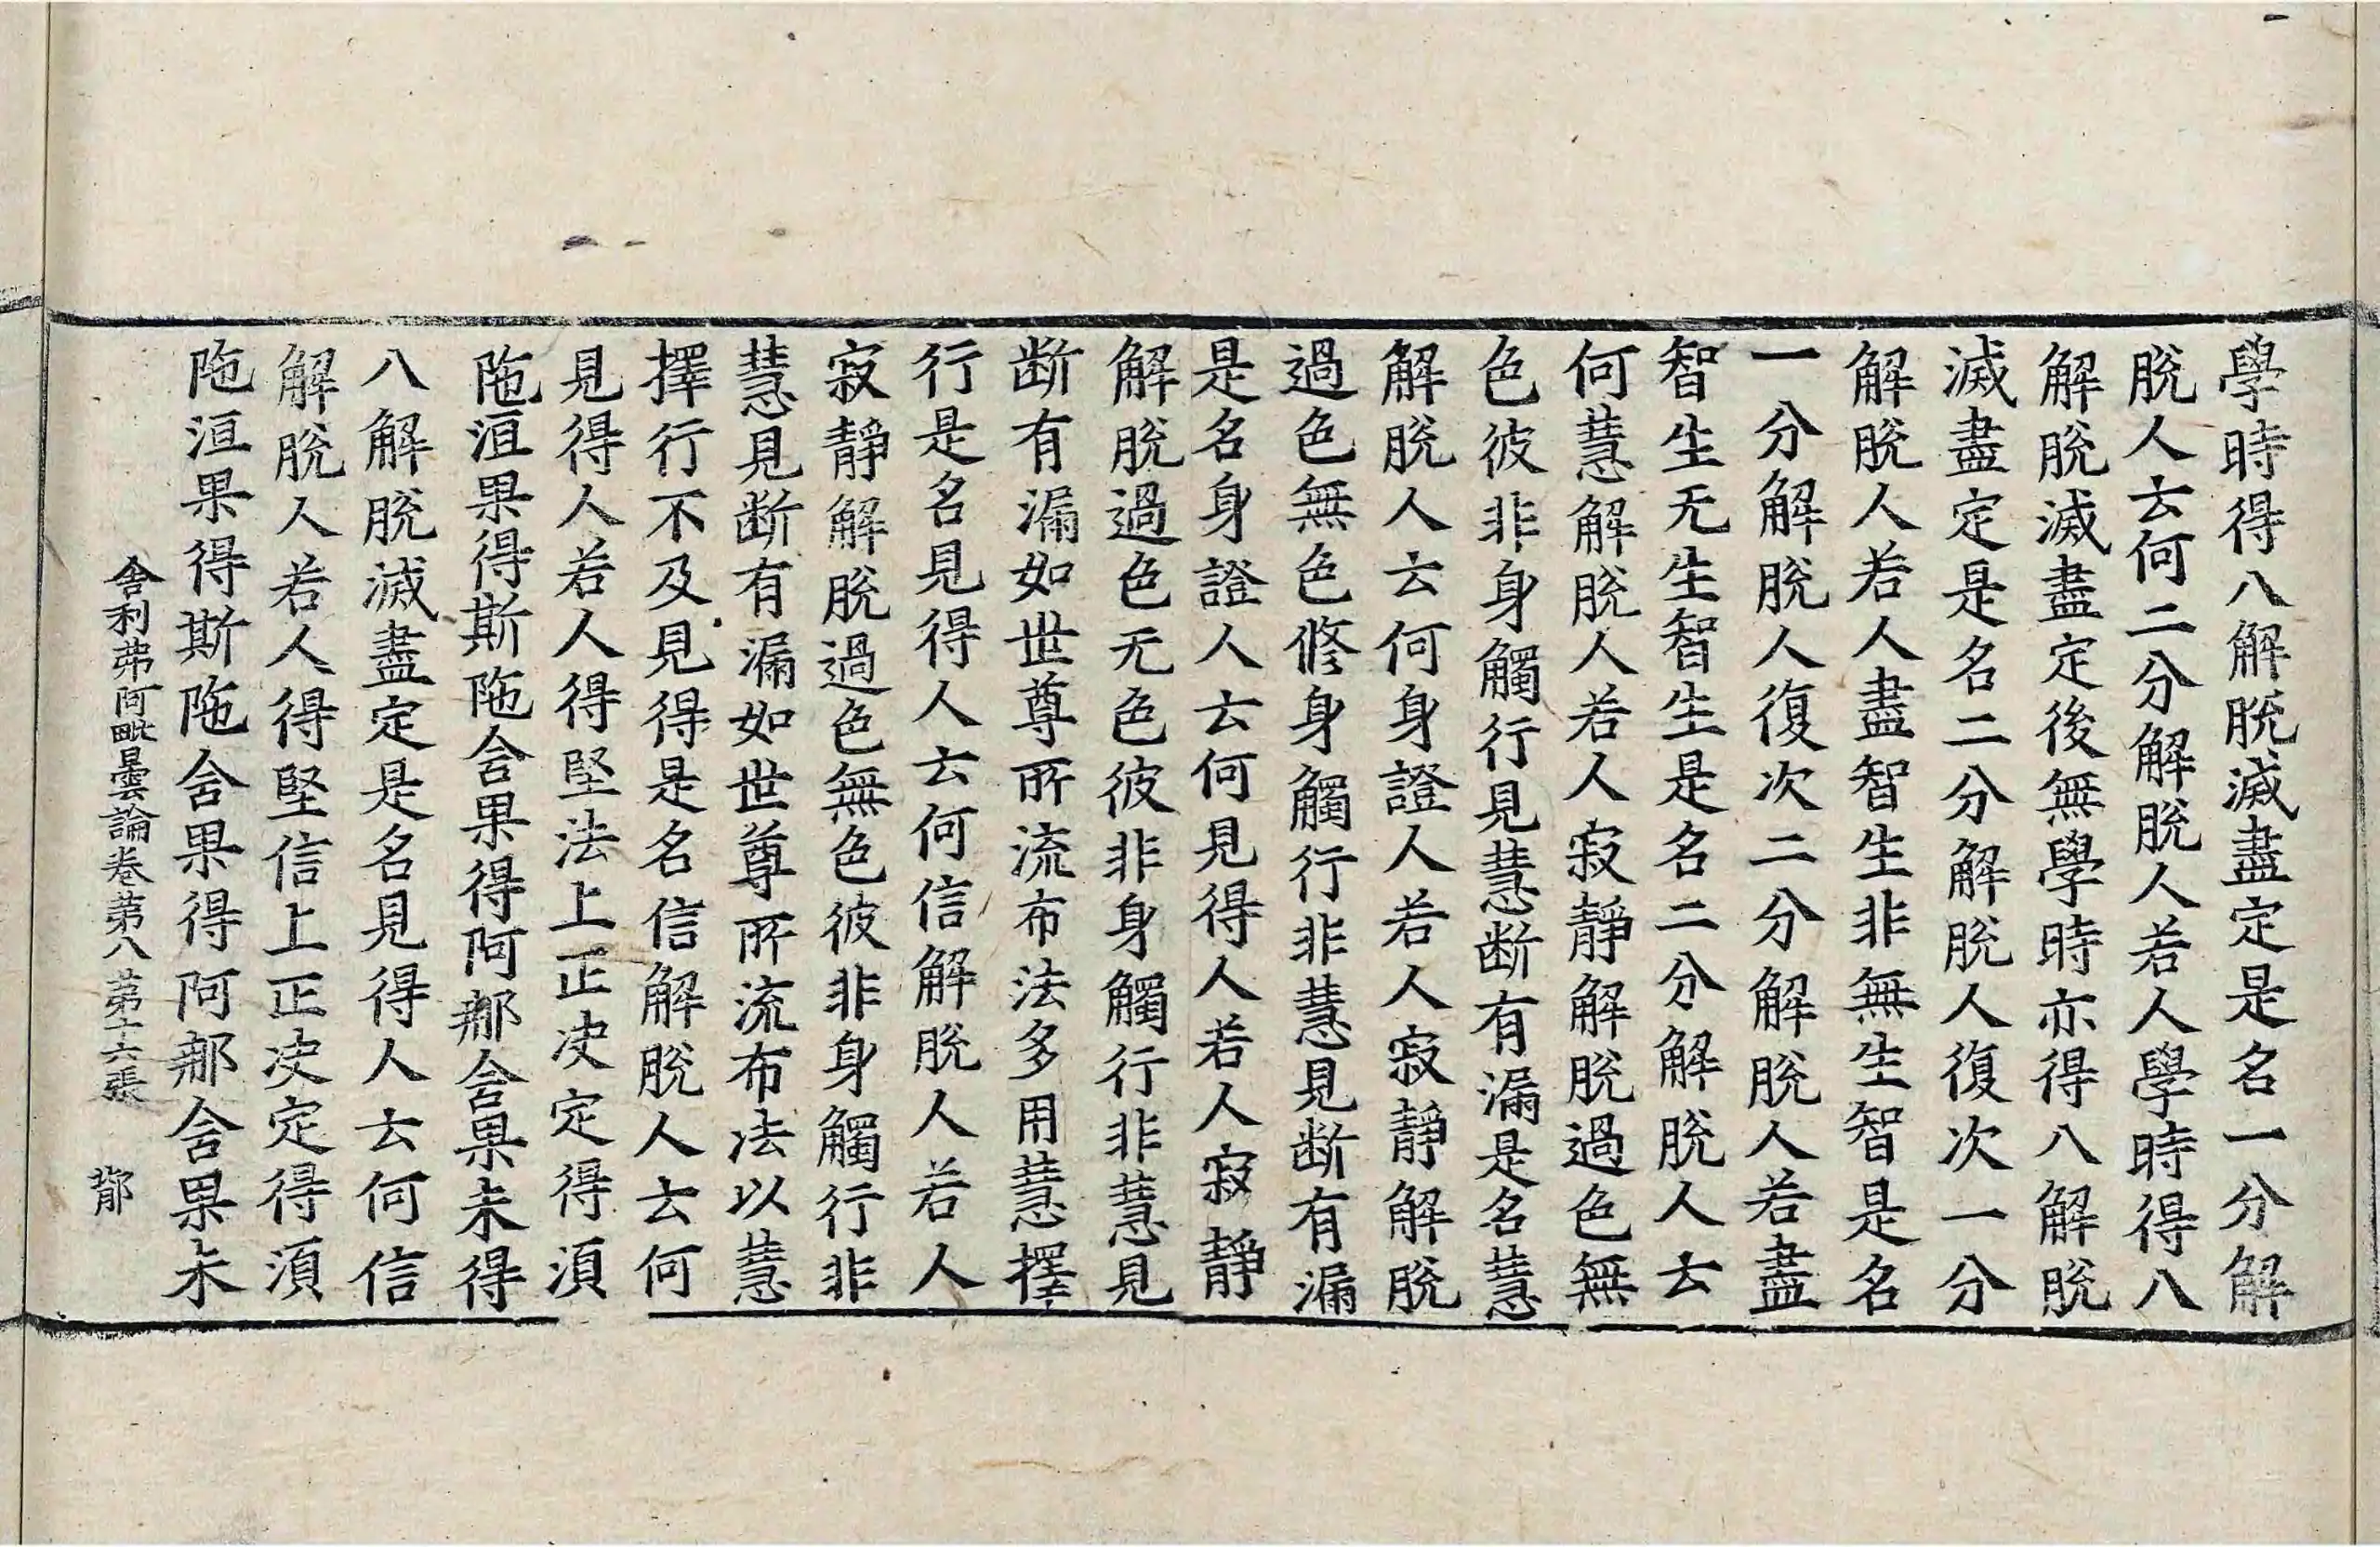 學時得八解脫滅盡定是名一分解
脫人云何二分解脫人若人學時得八
解脫滅盡定後無學時亦得八解脫
滅盡定是名二分解脫人復次一分
解脫人若人盡智生非無生智是名
一分解脫人復次二分解脫人若盡
智生无生智生是名二分解脫人云
何慧解脫人若人寂靜解脫過色無
色彼非身觸行見慧断有漏是名慧
解脫人云何身證人若人寂靜解脫
過色無色修身觸行非慧見断有漏
是名身證人云何見得人若人寂靜
解脫過色无色彼非身觸行非慧見
断有漏如世尊所流布法多用慧擇
行是名見得人云何信解脫人若人
寂靜解脫過色無色彼非身觸行非
慧見断有漏如世尊所流布法以慧
擇行不及見得是名信解脫人云何
見得人若人得堅法上正决定得湏
陁洹果得斯陁含果得阿那含果未得
八解脫滅盡定是名見得人云何信
解脫人若人得堅信上正决定得湏
陁洹果得斯陁含果得阿那含果未
舍利弗阿毗曇論卷苐八 苐十六張 鄁